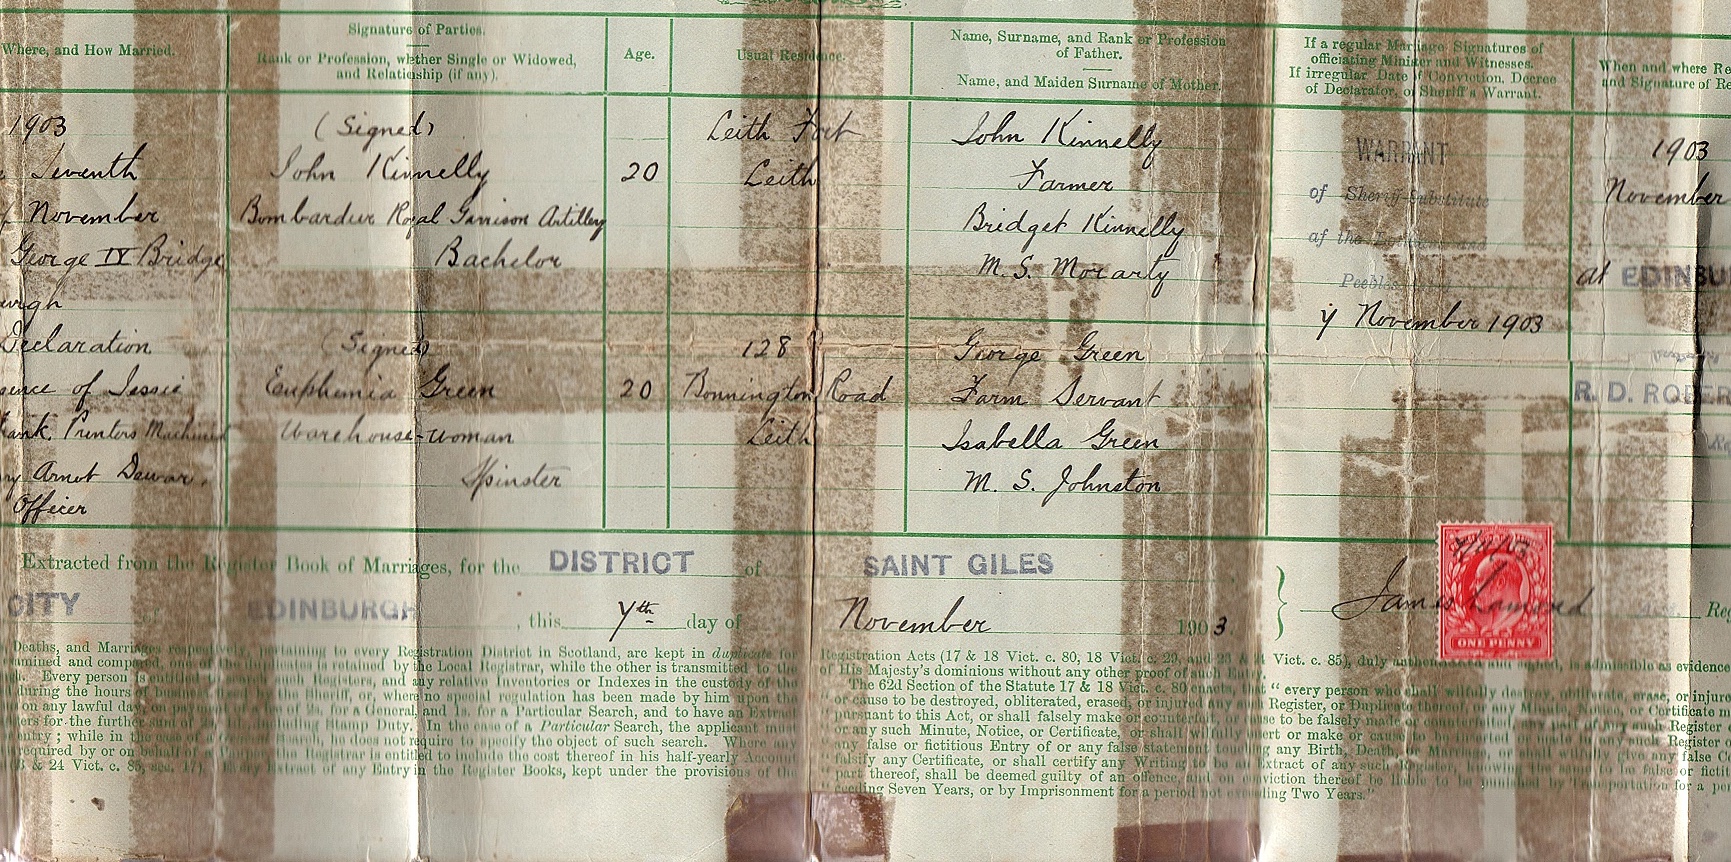 Where, and How Married.
Signature of Parties.
Rank or Profession, whether Single or Widowed,
and Relationship (if any).
Age.
Usual Residence.
Name, Surname, and Rank or Profession
of Father.
Name, and Maiden Surname of Mother.
If a regular Marriage, Signatures of
officiating Minister and Witnesses.
If irregular Date of Conviction, Decree
of Declarator, or Sheriff's Warrant.
When and where Re
and Signature of Re
1903
Seventh
November
George IV Bridge
urgh
Declaration
sence of Jessie
ank. Printers Machinist
ry Arnot Dewar,
Officer
(Signed)
John Kinnelly
Bombardier Royal Garrison Artillery
Bachelor
20
Leith Fort
Leith
John Kinnelly
Farmer
Bridget Kinnelly
M. S. Morarty
Signed
Euphemia Green
Warehouse-woman
Spinster
20
128
Bonnington Road
Leith
George Green
Farm Servant
Isabella Green
M. S. Johnston
WARRANT
of Sheriff-Substitute
of the Lothians and
Peebles
7 November 1903
1903
November
at EDINBU
R. D. ROBER
Extracted from the Register Book of Marriages, for the DISTRICT of SAINT GILES
CITY of EDINBURGH, this 7th day of November 1903
James Lamond
Re
ONE PENNY
Deaths, and Marriages respectively, pertaining to every Registration District in Scotland, are kept in duplicate for
is retained by the Local Registrar, while the other is transmitted to the
Every person is entitled
such Registers, and any relative Inventories or Indexes in the custody of the
during the hours of business
Sheriff, or, where no special regulation has been made by him upon the
on any lawful day, on payment of 2s. for a General, and 1s. for a Particular Search, and to have an Extract
ters for the further sum of
Stamp Duty. In the case of a Particular Search, the applicant must
entry; while in the case of
he does not require to specify the object of such search. Where any
required by or on behalf of
the Registrar is entitled to include the cost thereof in his half-yearly Account
3 & 24 Vict. c. 85, sec. 17).
Extract of any Entry in the Register Books, kept under the provisions of the
Registration Acts (17 & 18 Vict. c. 80, 18 Vict. c. 29, and 23 & 24 Vict. c. 85), duly authenticated, is admissible as evidence
of His Majesty's dominions without any other proof of such Entry.
The 62d Section of the Statute 17 & 18 Vict. c. 80 enacts, that "every person who shall wilfully destroy, obliterate, erase, or injure
or cause to be destroyed, obliterated, erased, or injured any such Register, or Duplicate thereof, or any Minute, Notice, or Certificate m
pursuant to this Act, or shall falsely make or counterfeit, or cause to be falsely made or counterfeited any part of any such Register o
or any such Minute, Notice, or Certificate, or shall wilfully insert or make or cause to be inserted or made in any such Register o
any false or fictitious Entry of or any false statement touching any Birth, Death, or Marriage, or shall wilfully give any false Ce
falsify any Certificate, or shall certify any Writing to be an Extract of any such Register, knowing the same to be false or fictit
part thereof, shall be deemed guilty of an offence, and on conviction thereof be liable to be punished by Transportation for a per
ceeding Seven Years, or by Imprisonment for a period not exceeding Two Years."